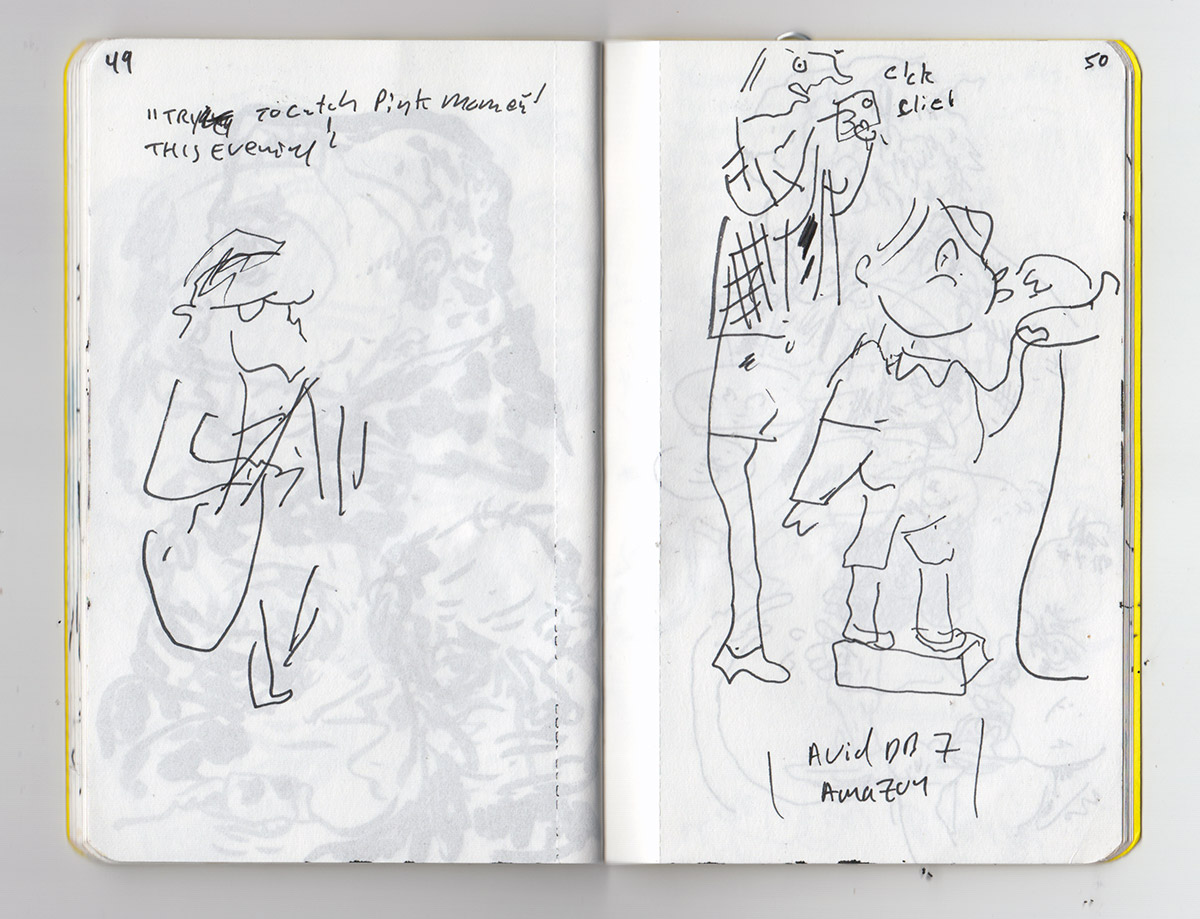 49
"TRYING TO CATCH Pink Moment!
THIS EVENING!
50
click
click
AVID DB 7
AMAZON